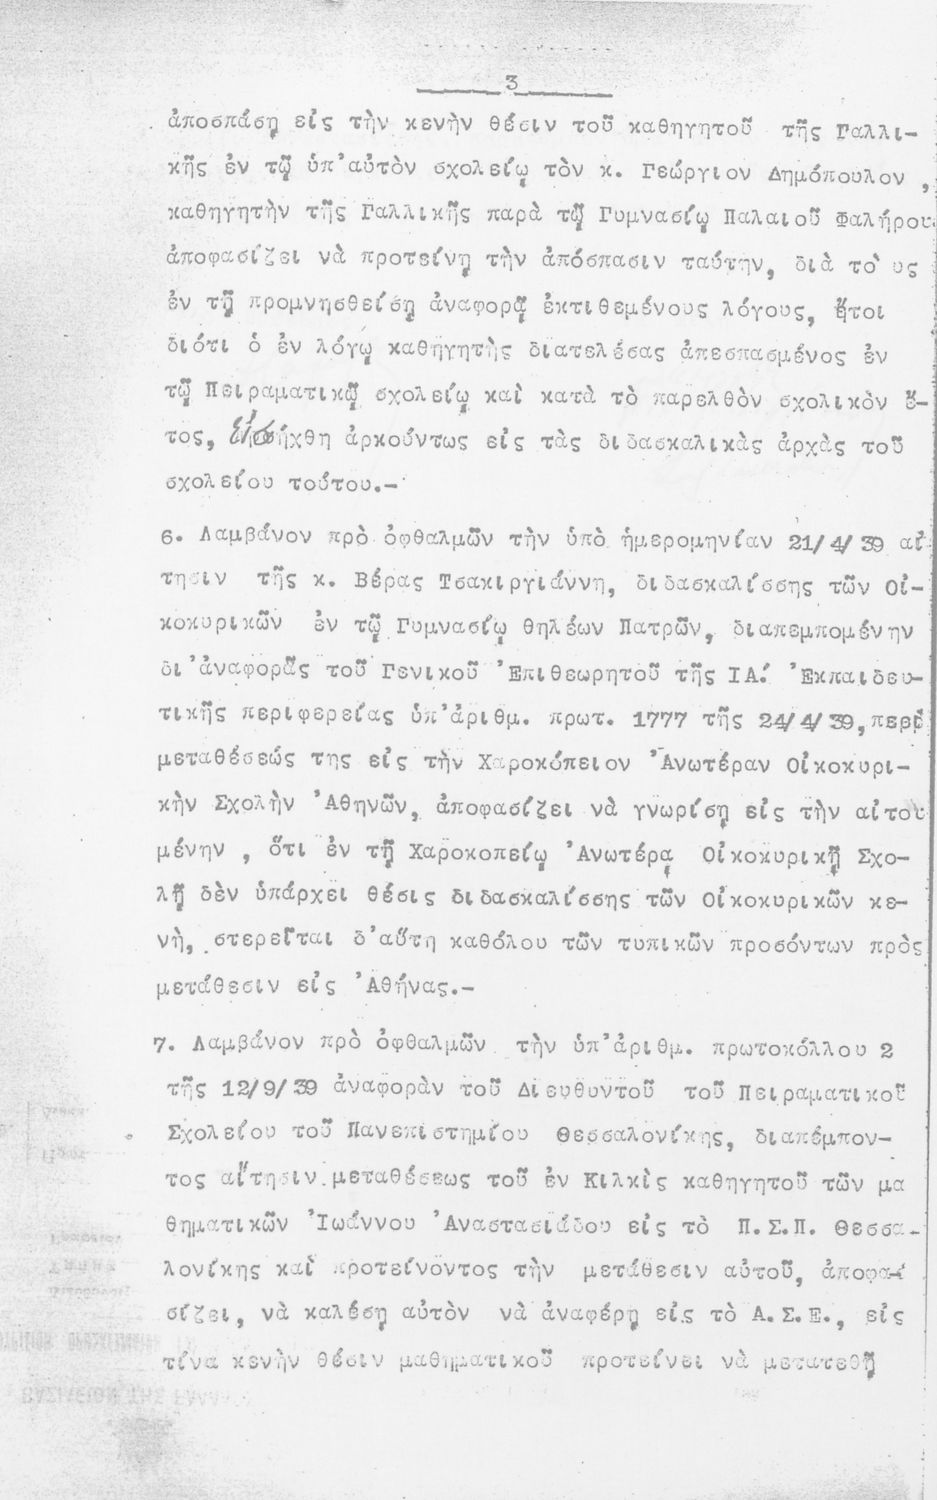 3
ἀποσπάσῃ εἰς τὴν κενὴν θέσιν τοῦ καθηγητοῦ τῆς Γαλλι-
κῆς ἐν τῷ ὑπ'αὐτὸν σχολείῳ τὸν κ. Γεώργιον Δημόπουλον ,
καθηγητὴν τῆς Γαλλικῆς παρὰ τῷ Γυμνασίῳ Παλαιοῦ Φαλήρου
ἀποφασίζει νὰ προτείνῃ τὴν ἀπόσπασιν ταύτην, διὰ το`υς
ἐν τῇ προμνησθείσῃ ἀναφορᾷ ἐκτιθεμένους λόγους, ἤτοι
διότι ὁ ἐν λόγῳ καθηγητὴς διατελέσας ἀπεσπασμένος ἐν
τῷ Πειραματικῷ σχολείῳ καὶ κατὰ τὸ παρελθὸν σχολικὸν ἔ-
τος, εἰσήχθη ἀρκούντως εἰς τὰς διδασκαλικὰς ἀρχὰς τοῦ
σχολείου τούτου.-
6. Λαμβάνον πρὸ ὀφθαλμῶν τὴν ὑπὸ ἡμερομηνίαν 21/4/39 αἴ
τησιν τῆς κ. Βέρας Τσακιργιάννη, διδασκαλίσσης τῶν Οἰ-
κοκυρικῶν ἐν τῷ Γυμνασίῳ θηλέων Πατρῶν, διαπεμπομένην
δι'ἀναφορᾶς τοῦ Γενικοῦ Ἐπιθεωρητοῦ τῆς ΙΑ΄. Ἐκπαιδευ-
τικῆς περιφερείας ὑπ'ἀριθμ. πρωτ. 1777 τῆς 24/4/39,περὶ
μεταθέσεώς της εἰς τὴν Χαροκόπειον Ἀνωτέραν Οἰκοκυρι-
κὴν Σχολὴν Ἀθηνῶν, ἀποφασίζει νὰ γνωρίσῃ εἰς τὴν αἰτου
μένην , ὅτι ἐν τῇ Χαροκοπείῳ Ἀνωτέρᾳ Οἰκοκυρικῇ Σχο-
λῇ δὲν ὑπάρχει θέσις διδασκαλίσσης τῶν Οἰκοκυρικῶν κε-
νὴ, στερεῖται δ'αὕτη καθόλου τῶν τυπικῶν προσόντων πρὸς
μετάθεσιν εἰς Ἀθήνας.-
7. Λαμβάνον πρὸ ὀφθαλμῶν τὴν ὑπ'ἀριθμ. πρωτοκόλλου 2
τῆς 12/9/39 ἀναφορὰν τοῦ Διευθυντοῦ τοῦ Πειραματικοῦ
Σχολείου τοῦ Πανεπιστημίου Θεσσαλονίκης, διαπέμπον-
τος αἴτησιν μεταθέσεως τοῦ ἐν Κιλκὶς καθηγητοῦ τῶν μα
θηματικῶν Ἰωάννου Ἀναστασιάδου εἰς τὸ Π.Σ.Π. Θεσσα-
λονίκης καὶ προτείνοντος τὴν μετάθεσιν αὐτοῦ, ἀποφα-
σίζει, νὰ καλέσῃ αὐτὸν νὰ ἀναφέρῃ εἰς τὸ Α.Σ.Ε., εἰς
τίνα κενὴν θέσιν μαθηματικοῦ προτείνει νὰ μετατεθῇ